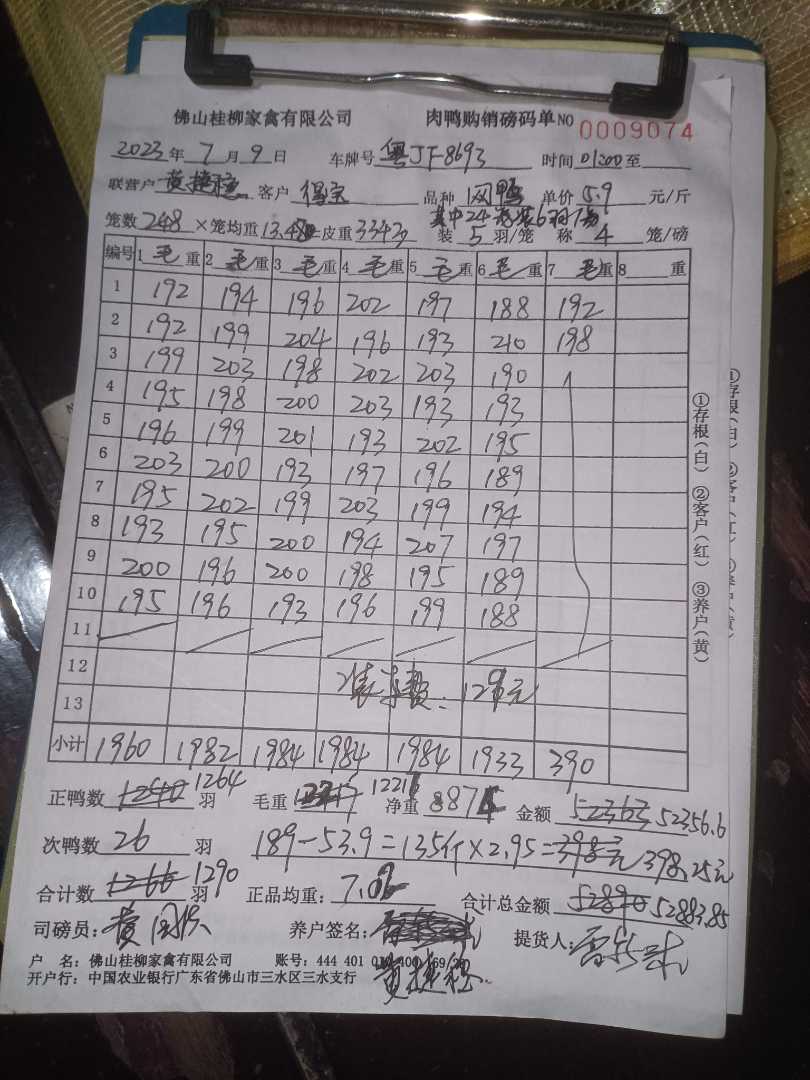 佛山桂柳家禽有限公司 肉鸭购销磅码单NO 0009074
2023年 7月 9日 车牌号 粤JF8693 时间 至
联营户 黄捷稳 客户 得宝 品种 网鸭 单价 5.9 元/斤
其中24笼装6羽/笼
笼数 248 ×笼均重 13.48 =皮重 3343 装 5 羽/笼 称 4 笼/磅
编号 1 毛重 2 毛重 3 毛重 4 毛重 5 毛重 6 毛重 7 毛重 8 重
1 192 194 196 202 197 188 192
2 192 199 204 196 193 210 198
3 199 203 198 202 203 190
4 195 198 200 203 193 193
5 196 199 201 193 202 195
6 203 200 193 197 196 189
7 195 202 199 203 199 194
8 193 195 200 194 207 197
9 200 196 200 198 195 189
10 195 196 193 196 199 188
11
12 装车费: 129元
13
小计 1960 1982 1984 1984 1984 1933 390
正鸭数 1240 1264 羽 毛重 12217 净重 8874 金额 52363 52356.6
次鸭数 26 羽 189-53.9=135斤×2.95=398元 398.25元
合计数 1266 1290 羽 正品均重: 7.02 合计总金额 52890 52883.85
司磅员: 养户签名: 黄捷稳 提货人:
户 名: 佛山桂柳家禽有限公司 账号: 444 401
开户行: 中国农业银行广东省佛山市三水区三水支行
①存根(白) ②客户(红) ③养户(黄)